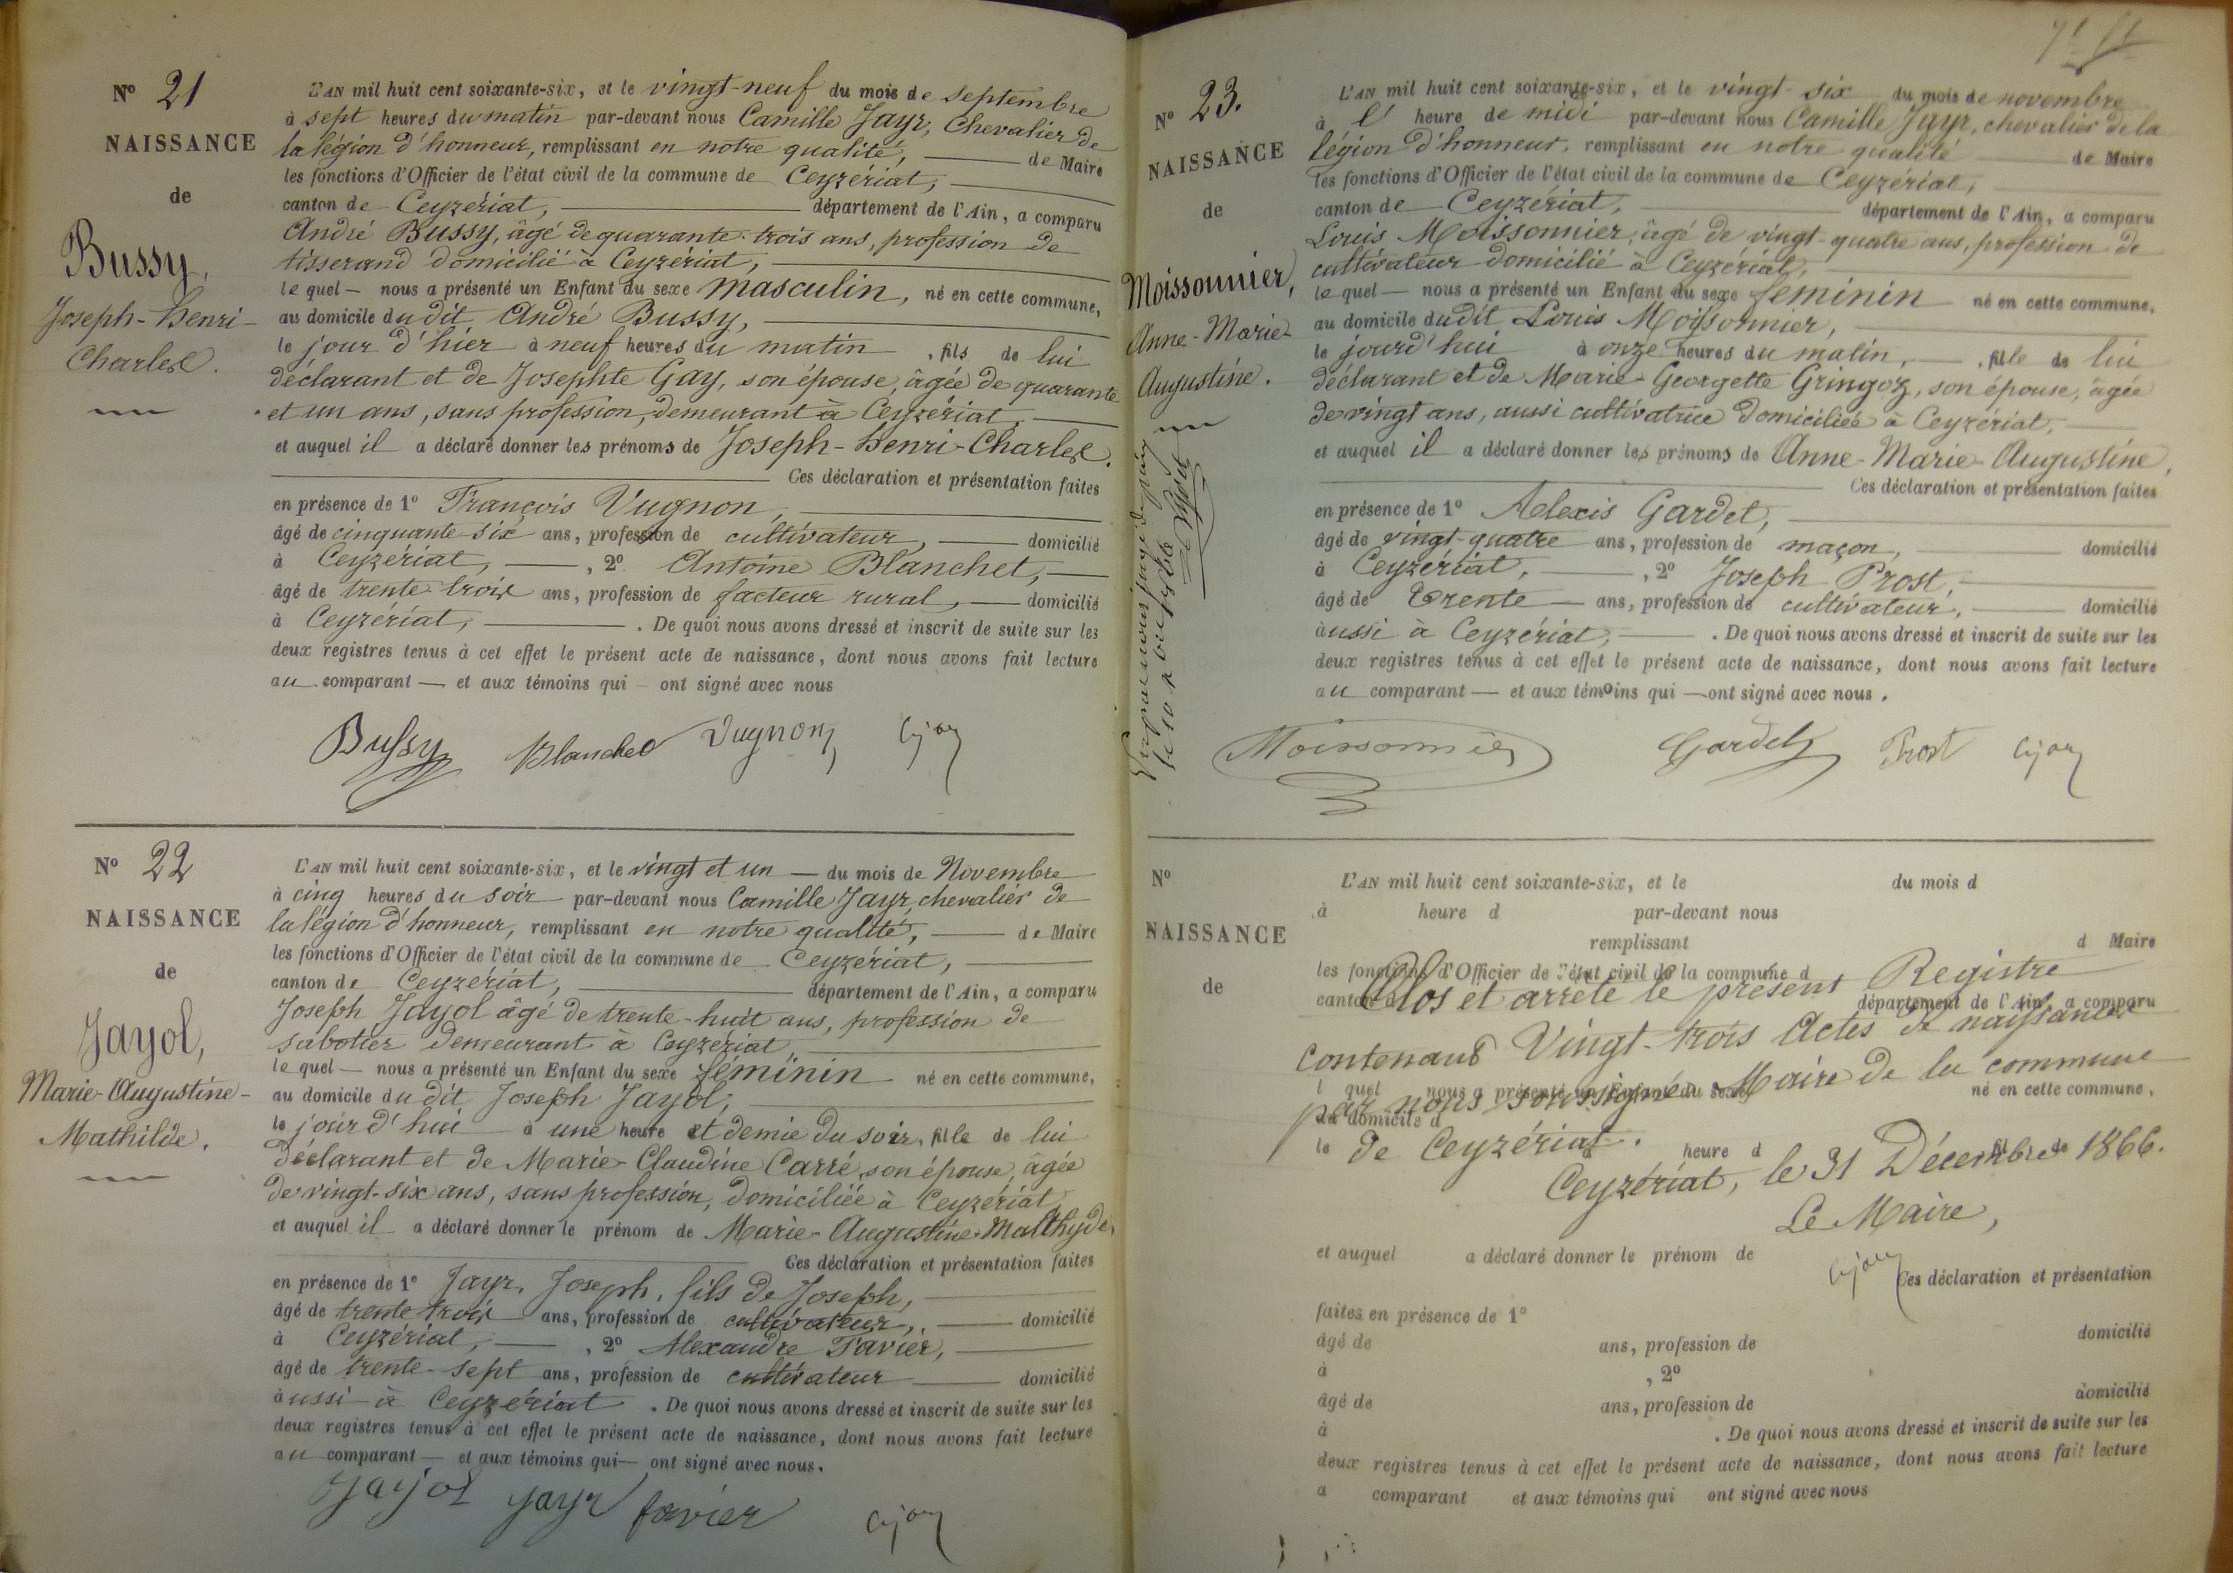 Nº 21
NAISSANCE
de
Bussy,
Joseph-Henri-
Charles.
L'AN mil huit cent soixante-six, et le vingt-neuf du mois de septembre
à sept heures du matin par-devant nous Camille Jayr, Chevalier de
la légion d'honneur, remplissant en notre qualité, de Maire
les fonctions d'Officier de l'état civil de la commune de Ceyzériat,
canton de Ceyzériat, département de l'Ain, a comparu
André Bussy, âgé de quarante-trois ans, profession de
tisserand domicilié à Ceyzériat,
lequel nous a présenté un Enfant du sexe masculin, né en cette commune,
au domicile dudit André Bussy,
le jour d'hier à neuf heures du matin, fils de lui
déclarant et de Josephte Gay, son épouse, âgée de quarante
et un ans, sans profession, demeurant à Ceyzériat
et auquel il a déclaré donner les prénoms de Joseph-Henri-Charles.
Ces déclaration et présentation faites
en présence de 1º François Vugnon,
âgé de cinquante-six ans, profession de cultivateur, domicilié
à Ceyzériat, , 2º Antoine Blanchet,
âgé de trente-trois ans, profession de facteur rural, domicilié
à Ceyzériat, . De quoi nous avons dressé et inscrit de suite sur les
deux registres tenus à cet effet le présent acte de naissance, dont nous avons fait lecture
au comparant et aux témoins qui ont signé avec nous
Bussy Blanchet Vugnon
Nº 22
NAISSANCE
de
Jayol,
Marie-Augustine-
Mathilde.
L'AN mil huit cent soixante-six, et le vingt et un du mois de Novembre
à cinq heures du soir par-devant nous Camille Jayr, chevalier de
la légion d'honneur, remplissant en notre qualité, de Maire
les fonctions d'Officier de l'état civil de la commune de Ceyzériat,
canton de Ceyzériat, département de l'Ain, a comparu
Joseph Jayol âgé de trente-huit ans, profession de
sabotier demeurant à Ceyzériat
lequel nous a présenté un Enfant du sexe féminin né en cette commune,
au domicile dudit Joseph Jayol,
le jourd'hui à une heure et demie du soir, fille de lui
déclarant et de Marie-Claudine Carré, son épouse, âgée
de vingt-six ans, sans profession, domiciliée à Ceyzériat
et auquel il a déclaré donner le prénom de Marie-Augustine-Mathyde,
Ces déclaration et présentation faites
en présence de 1º Jayr, Joseph, fils de Joseph,
âgé de trente-trois ans, profession de cultivateur, domicilié
à Ceyzériat, , 2º Alexandre Favier,
âgé de trente-sept ans, profession de cultivateur domicilié
aussi à Ceyzériat . De quoi nous avons dressé et inscrit de suite sur les
deux registres tenus à cet effet le présent acte de naissance, dont nous avons fait lecture
au comparant et aux témoins qui ont signé avec nous.
Jayol Jayr favier
Nº 23.
NAISSANCE
de
Moissonnier,
Anne-Marie-
Augustine.
L'AN mil huit cent soixante-six, et le vingt-six du mois de novembre
à l' heure de midi par-devant nous Camille Jayr, chevalier de la
légion d'honneur, remplissant en notre qualité de Maire
les fonctions d'Officier de l'état civil de la commune de Ceyzériat,
canton de Ceyzériat, département de l'Ain, a comparu
Louis Moissonnier, âgé de vingt-quatre ans, profession de
cultivateur domicilié à Ceyzériat,
lequel nous a présenté un Enfant du sexe féminin né en cette commune,
au domicile dudit Louis Moissonnier,
le jourd'hui à onze heures du matin, fille de lui
déclarant et de Marie-Georgette Gringoz, son épouse, âgée
de vingt ans, aussi cultivatrice domiciliée à Ceyzériat,
et auquel il a déclaré donner les prénoms de Anne-Marie-Augustine,
Ces déclaration et présentation faites
en présence de 1º Alexis Gardet,
âgé de vingt-quatre ans, profession de maçon, domicilié
à Ceyzériat, , 2º Joseph Prost,
âgé de trente ans, profession de cultivateur, domicilié
aussi à Ceyzériat, . De quoi nous avons dressé et inscrit de suite sur les
deux registres tenus à cet effet le présent acte de naissance, dont nous avons fait lecture
au comparant et aux témoins qui ont signé avec nous.
Moissonnier Gardet Prost
Nº
NAISSANCE
de
L'AN mil huit cent soixante-six, et le du mois d
à heure d par-devant nous
remplissant d Maire
les fonctions d'Officier de l'état civil de la commune d
Clos et arrêté le présent Registre
canton d département de l'Ain, a comparu
contenant Vingt-trois Actes de naissances
l quel nous a présenté un Enfant du sexe né en cette commune,
par nous soussigné Maire de la commune
au domicile d
le heure d fil de
de Ceyzériat.
Ceyzériat, le 31 Décembre 1866.
Le Maire,
et auquel a déclaré donner le prénom de
Ces déclaration et présentation
faites en présence de 1º
âgé de ans, profession de domicilié
à , 2º
âgé de ans, profession de domicilié
à . De quoi nous avons dressé et inscrit de suite sur les
deux registres tenus à cet effet le présent acte de naissance, dont nous avons fait lecture
a comparant et aux témoins qui ont signé avec nous